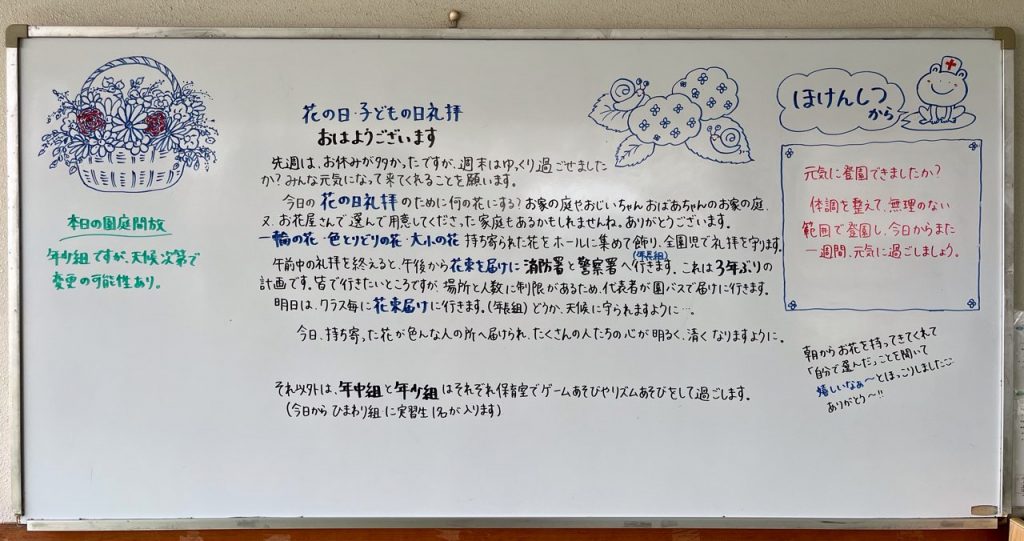 本日の園庭開放
年少組ですが、天候次第で
変更の可能性あり。
花の日・子どもの日礼拝
おはようございます
先週は、お休みが多かったですが、週末はゆっくり過ごせました
か？みんな元気になって来てくれることを願います。
今日の花の日礼拝のために何の花にする？お家の庭やおじいちゃんおばあちゃんのお家の庭、
又、お花屋さんで選んで用意してくださった家庭もあるかもしれませんね。ありがとうございます。
一輪の花・色とりどりの花・大小の花 持ち寄られた花をホールに集めて飾り、全園児で礼拝を守ります。
(年長組)
午前中の礼拝を終えると、午後から花束を届けに消防署と警察署へ行きます。これは3年ぶりの
計画です。皆で行きたいところですが、場所と人数に制限があるため、代表者が園バスで届けに行きます。
明日は、クラス毎に花束届けに行きます。(年長組)どうか、天候に守られますように…。
今日、持ち寄った花が色んな人の所へ届けられ、たくさんの人たちの心が明るく、清くなりますように。
それ以外は、年中組と年少組はそれぞれ保育室でゲームあそびやリズムあそびをして過ごします。
(今日からひまわり組に実習生1名が入ります)
ほけんしつ
から
元気に登園できましたか？
体調を整えて、無理のない
範囲で登園し、今日からまた
一週間、元気に過ごしましょう。
朝からお花を持ってきてくれて
「自分で選んだ」ことを聞いて
嬉しいなぁ〜とほっこりしました
ありがとう〜!!